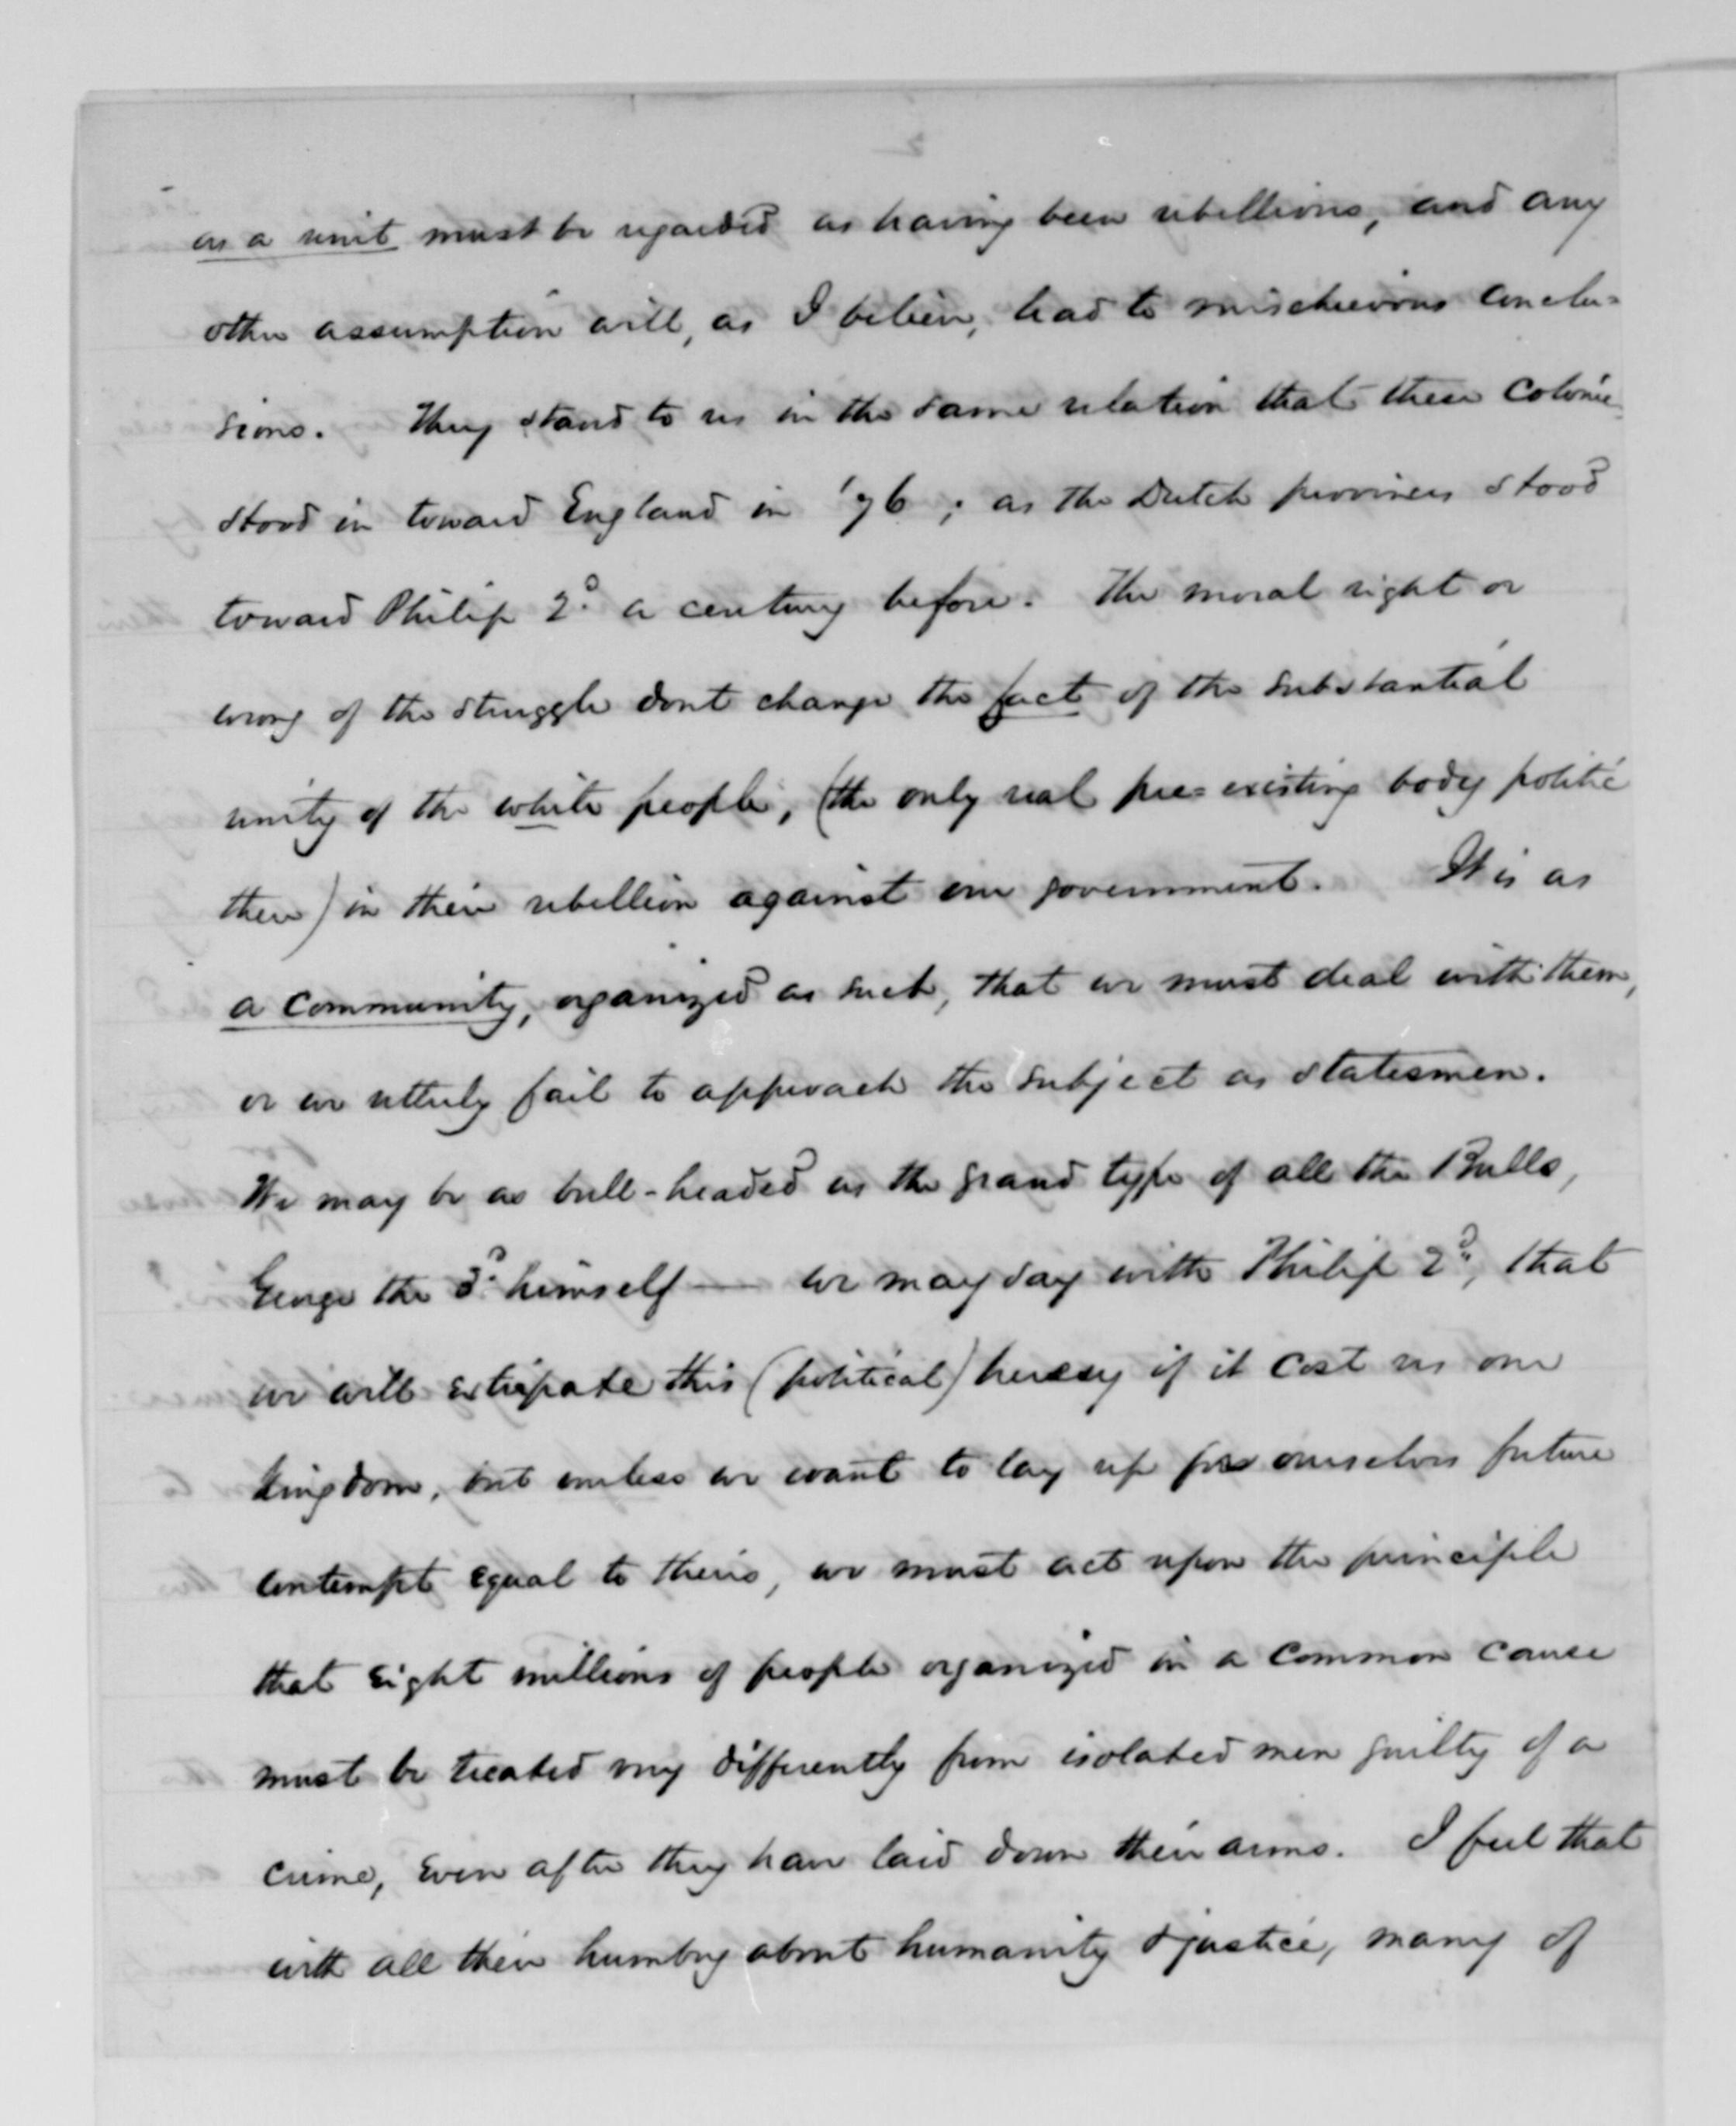 as a unit must be regarded as having been rebellious, and any
other assumption will, as I believe, lead to mischievous conclu=
sions. They stand to us in the same relation that these Colonies
stood in toward England in '76; as the Dutch provinces stood
toward Philip 2d. a century before. The moral right or
wrong of the struggle dont change the fact of the substantial
unity of the white people, (the only real pre=existing body politic
there) in their rebellion against our government. It is as
a community, organized as such, that we must deal with them,
or we utterly fail to approach the subject as statesmen.
We may be as bull-headed as the grand type of all the Bulls,
George the 3d. himself — we may say with Philip 2d., that
we will extirpate this (political) heresy if it cost us our
kingdom, but unless we want to lay up for ourselves future
contempt equal to theirs, we must act upon the principle
that eight millions of people organized in a common cause
must be treated very differently from isolated men guilty of a
crime, even after they have laid down their arms. I feel that
with all their humbug about humanity & justice, many of